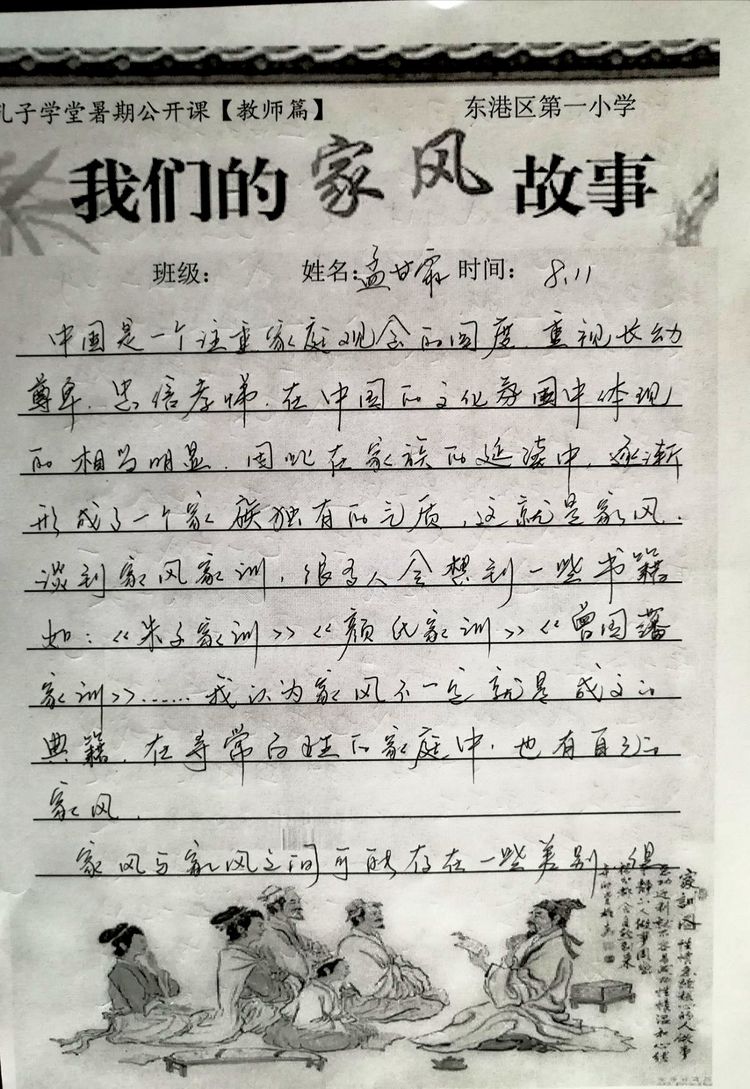 孔子学堂暑期公开课【教师篇】 东港区第一小学
我们的家风故事
班级： 姓名：孟甘霖 时间： 8.11
中国是一个注重家庭观念的国度，重视长幼
尊卑、忠信孝悌，在中国的文化氛围中体现
的相当明显，因此在家族的延续中，逐渐
形成了一个家族独有的气质，这就是家风。
谈到家风家训，很多人会想到一些书籍
如：《朱子家训》《颜氏家训》《曾国藩
家训》……我认为家风不一定就是成文的
典籍，在寻常百姓的家庭中，也有自己的
家风.
家风与家风之间可能存在一些差别，但
家训图